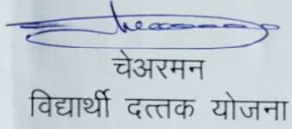 चेअरमन
विद्यार्थी दत्तक योजना